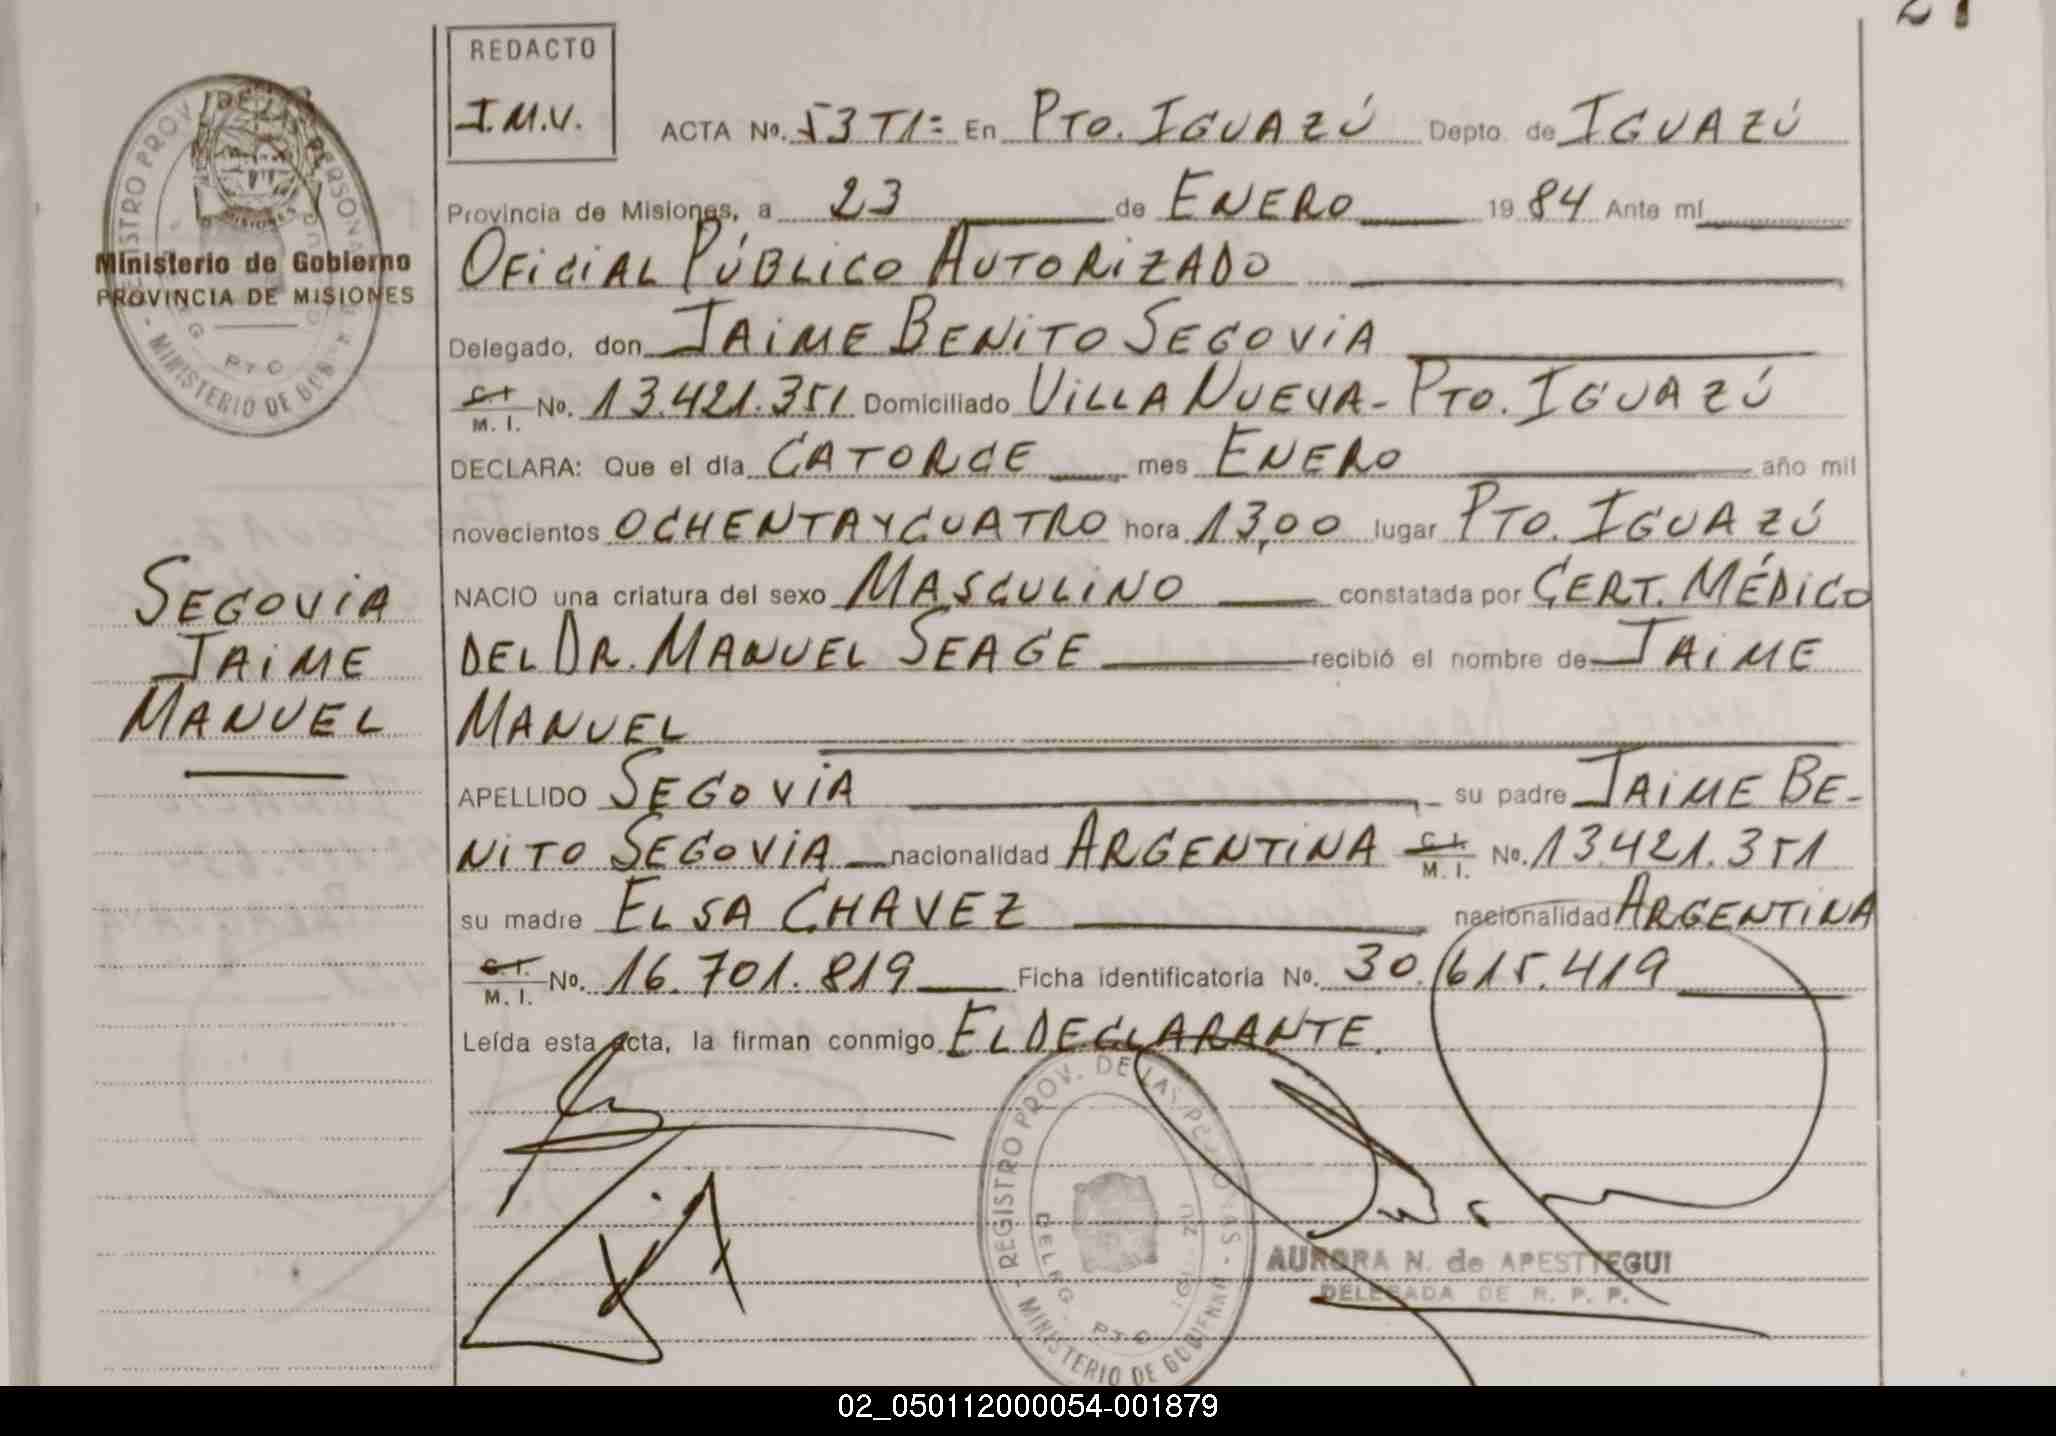 27
REDACTO
I.M.V.
ACTA No. 53 T1= En PTO. IGUAZÚ Depto. de IGUAZÚ
Provincia de Misiones, a 23 de ENERO 1984 Ante mí
OFICIAL PÚBLICO AUTORIZADO
Delegado, don JAIME BENITO SEGOVIA
C.I. M. I. No. 13.421.351 Domiciliado VILLA NUEVA - PTO. IGUAZÚ
DECLARA: Que el día CATORCE mes ENERO año mil
novecientos OCHENTA Y CUATRO hora 13,00 lugar PTO. IGUAZÚ
NACIO una criatura del sexo MASCULINO constatada por CERT. MÉDICO
DEL DR. MANUEL SEAGE recibió el nombre de JAIME
MANUEL
APELLIDO SEGOVIA su padre JAIME BE-
NITO SEGOVIA nacionalidad ARGENTINA C.I. M. I. No. 13.421.351
su madre ELSA CHAVEZ nacionalidad ARGENTINA
C.I. M. I. No. 16.701.819 Ficha identificatoria No. 30.615.419
Leída esta acta, la firman conmigo EL DECLARANTE.
REGISTRO PROV. DE LAS PERSONAS
DELEG. PTO IGUAZU
- MINISTERIO DE GOBIERNO -
AURORA N. de APESTTEGUI
DELEGADA DE R. P. P.
REGISTRO PROV. DE LAS PERSONAS
MISIONES
Ministerio de Gobierno
PROVINCIA DE MISIONES
DELEG. PTO
- MINISTERIO DE GOB
SEGOVIA
JAIME
MANUEL
02_050112000054-001879